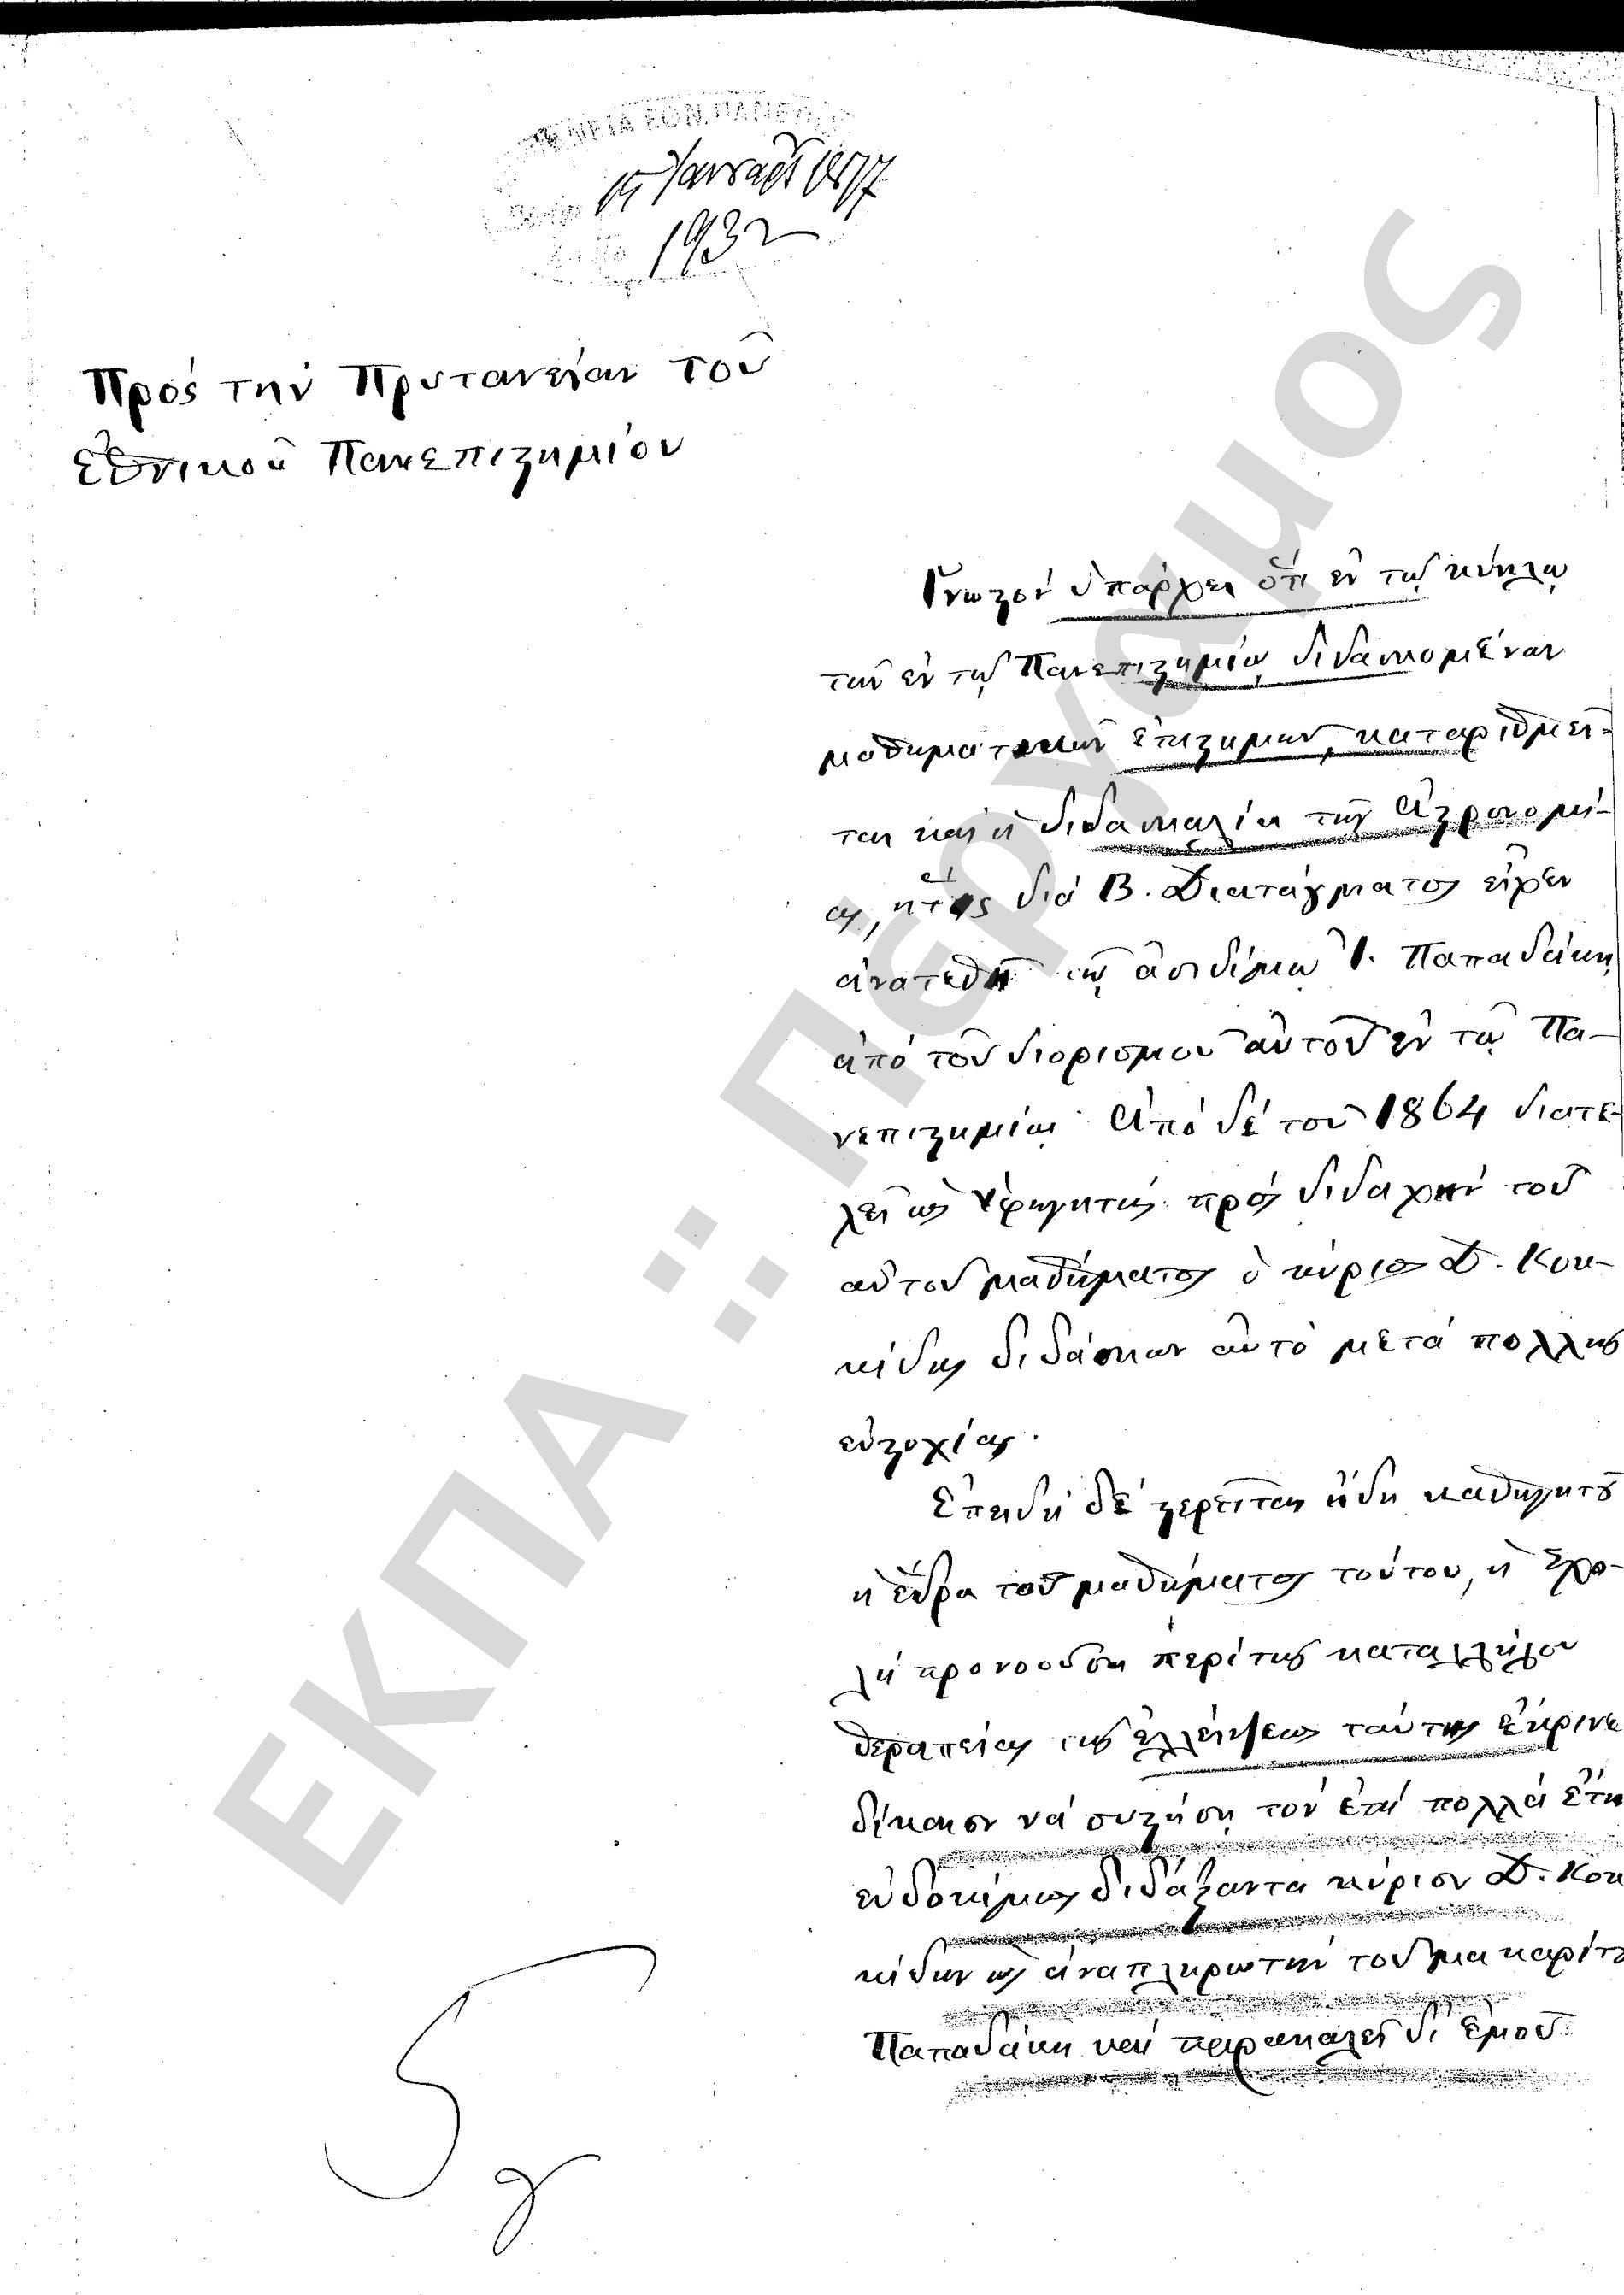 15 Ἰανουαρ 1877
1932
Πρός τήν Πρυτανείαν τοῦ
Ἐθνικοῦ Πανεπιστημίου
Γνωστόν ὑπάρχει ὅτι ἐν τῷ κύκλῳ
τῶν ἐν τῷ Πανεπιστημίῳ διδασκομένων
μαθηματικῶν ἐπιστημῶν, καταριθμεῖ-
ται καί ἡ διδασκαλία τῆς Ἀστρονομί-
ας, ἥτις διά Β. Διατάγματος εἶχεν
ἀνατεθῆ τῷ ἀοιδίμῳ Ἰ. Παπαδάκῃ
ἀπό τοῦ διορισμοῦ αὐτοῦ ἐν τῷ Πα-
νεπιστημίῳ. Ἀπό δέ τοῦ 1864 διατε-
λεῖ ὡς Ὑφηγητής πρός διδαχήν τοῦ
αὐτοῦ μαθήματος ὁ κύριος Δ. Κοκ-
κίδης διδάσκων αὐτό μετά πολλῆς
εὐστοχίας.
Ἐπειδή δέ στερεῖται ἤδη καθηγητοῦ
ἡ ἕδρα τοῦ μαθήματος τούτου, ἡ Σχο-
λή προνοοῦσα περί τῆς καταλλήλου
θεραπείας τῆς ἐλλείψεως ταύτης ἔκρινε
δίκαιον νά συστήσῃ τόν ἐπί πολλά ἔτη
εὐδοκίμως διδάξαντα κύριον Δ. Κοκ
κίδην ὡς ἀναπληρωτήν τοῦ μακαρίτου
Παπαδάκη καί παρακαλεῖ δι' ἐμοῦ
ΕΚΠΑ :: Πέργαμος